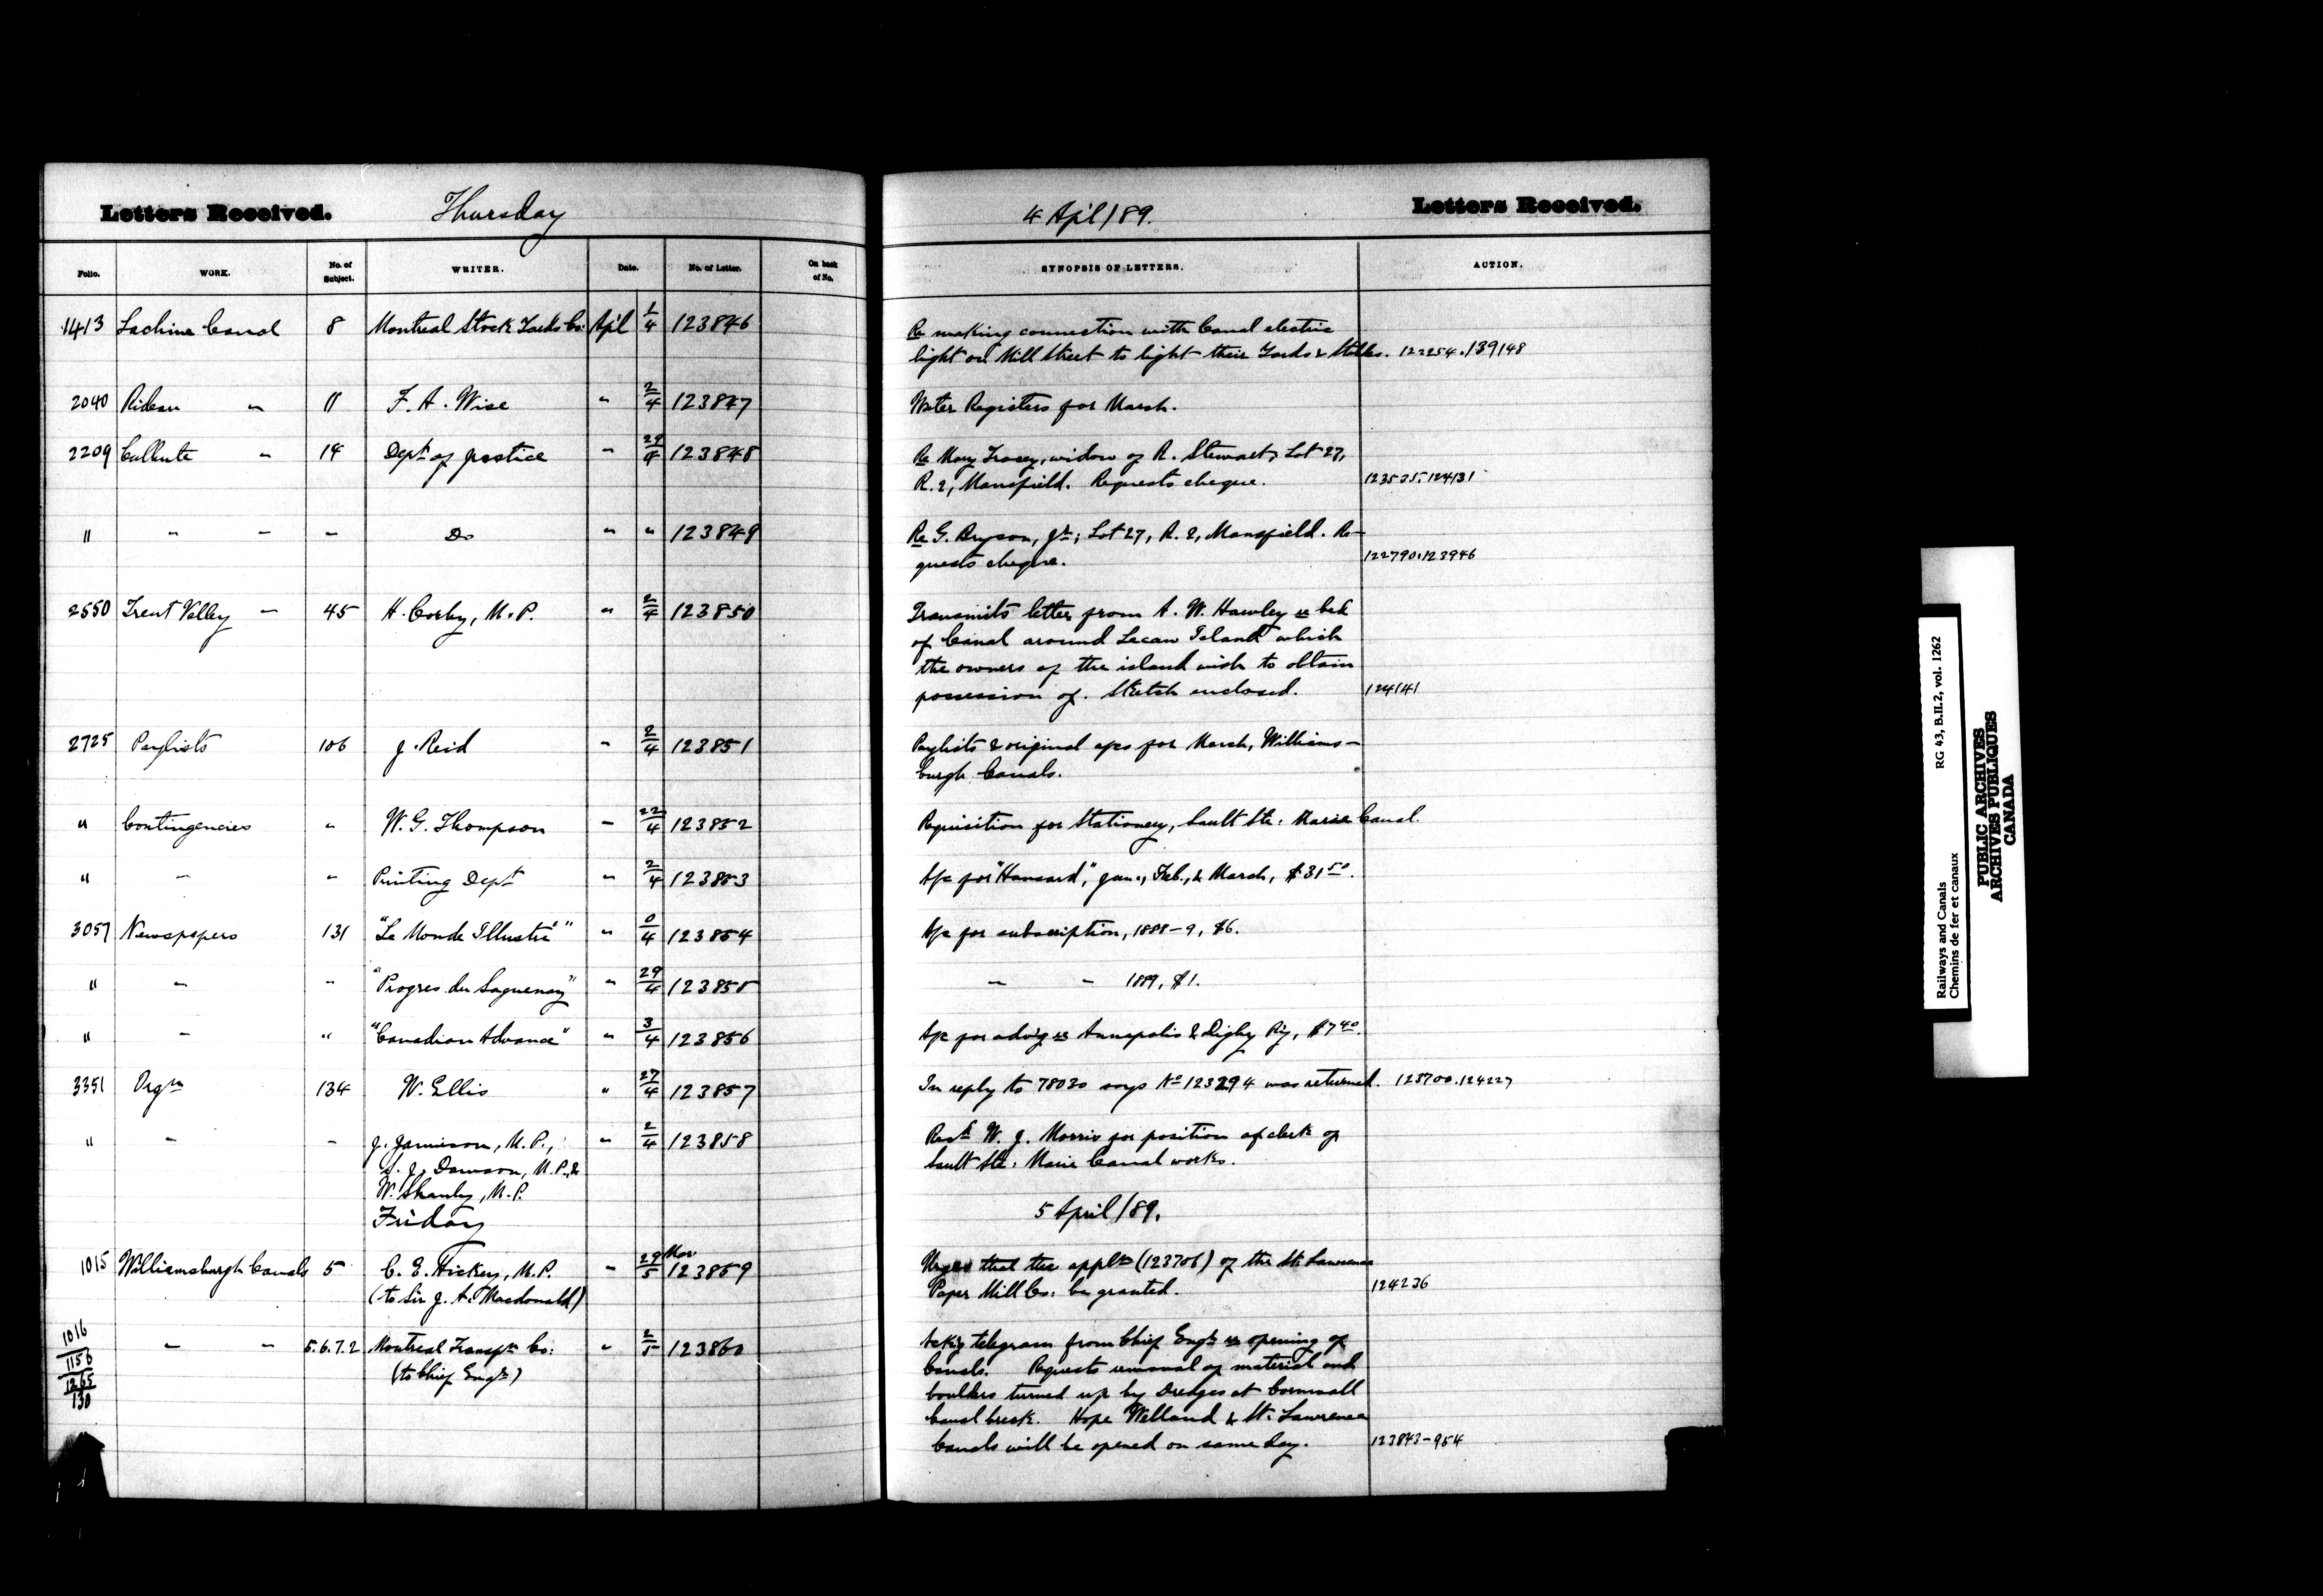 Letters Received. Thursday
4 Apl/89. Letters Received.
Folio. WORK. No. of Subject. WRITER. Date. No. of Letter. On back of No. SYNOPSIS OF LETTERS. ACTION.
1413 Lachine Canal 8 Montreal Stock Yards Co: Apl 1/4 123846 Re making connection with Canal electric
light on Mill Street to light their Yards & Stables. 122254.139148
2040 Rideau " 11 F. A. Wise " 2/4 123847 Water Registers for March.
2209 Culbute " 14 Dept of Justice " 29/4 123848 Re Mary Tracey, widow of R. Stewart, Lot 27,
R. 2, Mansfield. Requests cheque. 123535.124131
" " " " Do " " 123849 Re G. Bryson, Jr; Lot 27, R. 2, Mansfield. Re-
quests cheque. 122790.123946
2550 Trent Valley " 45 H. Corby, M.P. " 2/4 123850 Transmits letter from A. W. Hawley re bed
of Canal around Island which
the owners of the island wish to obtain
possession of. Sketch enclosed. 124141
2725 Paylists 106 J. Reid " 2/4 123851 Paylists & original a/cs for March, Williams-
burgh Canals.
" Contingencies " W. G. Thompson " 22/4 123852 Requisition for Stationery, Sault Ste: Marie Canal.
" " " Printing Dept " 2/4 123853 A/c for "Hansard", Jan., Feb., & March, $31.50.
3057 Newspapers 131 "Le Monde Illustré" " 0/4 123854 A/c for subscription, 1888-9, $6.
" " " "Progres du Saguenay" " 29/4 123855 " " 1889, $1.
" " " "Canadian Advance" " 3/4 123856 A/c for advtg re Annapolis & Digby Ry, $7.40.
3351 Orgn 134 W. Ellis " 27/4 123857 In reply to 78020 says No 123294 was returned. 123700.124227
" " " J. Jamieson, M.P., " 2/4 123858 Recds W. J. Morris for position of clerk of
S. J. Dawson, M.P., & Sault Ste: Marie Canal works.
W. Shanly, M.P.
Friday 5 April/89.
1015 Williamsburgh Canals 5 C. E. Hickey, M.P. " 29/5 Mar 123859 Urges that the appln (123706) of the St. Lawrence
(to Sir J. A. Macdonald) Paper Mill Co: be granted. 124236
1016 " " 5.6.7.2 Montreal Transpn Co: " 2/5 123860 Ackg telegram from Chief Engr re opening of
1156 (to Chief Engr) Canals. Requests removal of material and
1265 boulders turned up by Dredges at Cornwall
130 Canal break. Hope Welland & St. Lawrence
Canals will be opened on same day. 123843-954
Railways and Canals RG 43, B.II.2, vol. 1262
Chemins de fer et canaux
PUBLIC ARCHIVES
ARCHIVES PUBLIQUES
CANADA